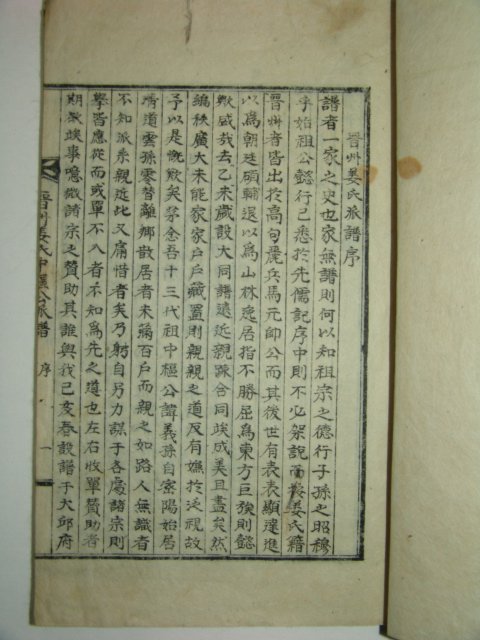 晋州姜氏派譜序
譜者一家之史也家無譜則何以知祖宗之德行子孫之昭穆
乎始祖公懿行已悉於先儒記序中則不必架說而蓋姜氏籍
晋州者皆出於高句麗兵馬元帥公而其後世有表表顯達進
以爲朝廷碩輔退以爲山林逸居指不勝屈爲東方巨族則懿
歟盛哉去乙未歲設大同譜遠近親踈合同竣成美且盡矣然
編秩廣大未能家家戶戶藏置則親親之道反有嫌於泛視故
予以是說歎矣茅念吾十三代祖中樞公諱義孫自寮陽始居
清道雲孫零替離鄉散居者未滿百戶而親之如路人無識者
不知派系親近此又痛惜者矣乃躬自另力謀于各處諸宗則
擧皆應從而或單不入者不知爲先之道也左右收單贊助者
期歲竣事噫微諸宗之贊助其誰與我己亥春設譜于大邱府
晋州姜氏中樞公派譜 序 一